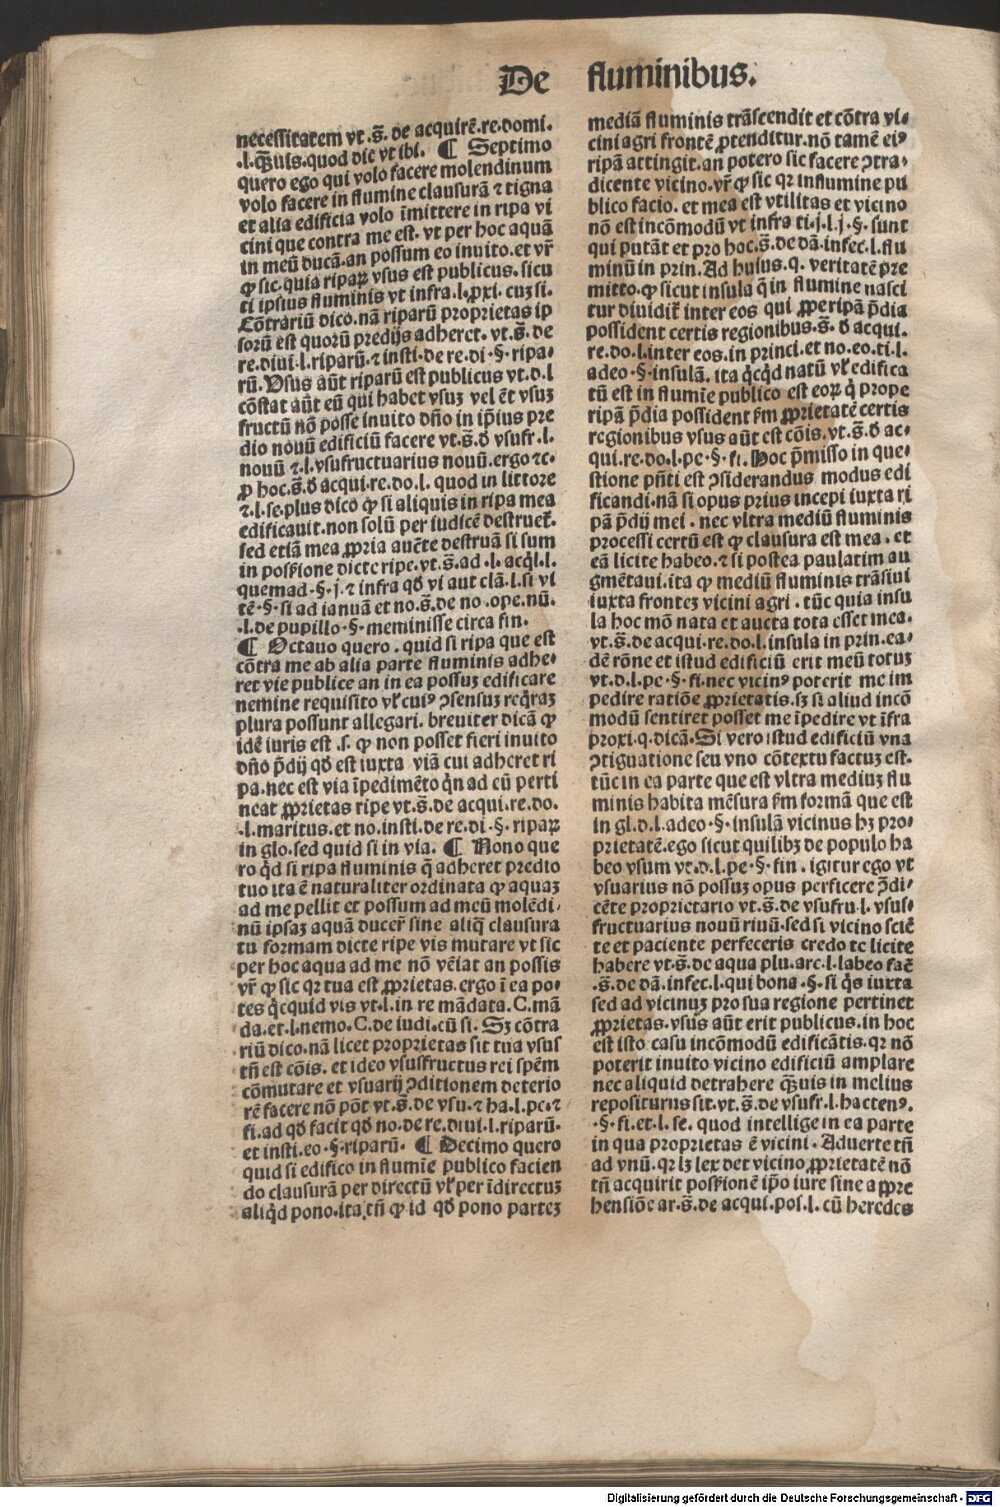 De fluminibus.
necessitatem vt.s̄. de acquirē.re.domi.
.l.qȝuis.quod dic vt ibi. ¶ Septimo
quero ego qui volo facere molendinum
volo facere in flumine clausurā ⁊ tigna
et alia edificia volo īmittere in ripa vi
cini que contra me est. vt per hoc aquā
in meū ducā.an possum eo inuito.et vr̄
ꝙ sic.quia riparꝝ vsus est publicus.sicu
ti ipsius fluminis vt infra.l.ꝓxi. cuȝ si.
Cōtrariū dico.nā riparū proprietas ip
sorū est quorū predijs adheret. vt.s̄.de
re.diui.l.riparū.⁊ insti.de re.di.§.ripa/
rū.Vsus aūt riparū est publicus vt.d.l
cōstat aūt eū qui habet vsuȝ vel ēt vsuȝ
fructū nō posse inuito dn̄o in ip̄ius pre
dio nouū edificiū facere vt.s̄.ď vsufr.l.
nouū ⁊.l.vsufructuarius nouū.ergo ⁊c.
ꝓ hoc.s̄.ď acqui.re.do.l. quod in littore
⁊.l.se.plus dico ꝙ si aliquis in ripa mea
edificauit.non solū per iudicē destrueť.
sed etiā mea ꝓpria auc̄te destruā si sum
in possȩ̄ione dicte ripe.vt.s̄.ad .l. acq̇l.l.
quemad.§.j.⁊ infra qď vi aut clā.l.si vi
tē.§.si ad ianuā et no.s̄.de no.ope.nū.
.l.de pupillo.§.meminisse circa fin.
¶ Octauo quero.quid si ripa que est
cōtra me ab alia parte fluminis adhe/
ret vie publice an in ea possuȝ edificare
nemine requisito vľcuiꝰ ꝯsensuȝ req̇raȝ
plura possunt allegari. breuiter dicā ꝙ
idē iuris est .s. ꝙ non posset fieri inuito
dn̄o p̄dij qď est iuxta viā cui adheret ri
pa.nec est via īpedimēto q̇n ad eū perti
neat ꝓprietas ripe vt.s̄.de acqui.re.do.
.l.maritus.et no.insti.de re.di.§.riparꝝ
in glo.sed quid si in via. ¶ Nono que
ro q̇d si ripa fluminis q̄ adheret predio
tuo ita ē naturaliter ordinata ꝙ aquaȝ
ad me pellit et possum ad meū molēdi/
nū ipsaȝ aquā ducer̄ sine aliq̄ clausura
tu formam dicte ripe vis mutare vt sic
per hoc aqua ad me nō vēiat an possis
vr̄ ꝙ sic qꝛ tua est ꝓprietas.ergo ī ea po/
tes q̇cquid vis vt.l.in re mādata.C.mā
da.et.l.nemo.C.de iudi.cū si. Sȝ cōtra
riū dico.nā licet proprietas sit tua vsus
tn̄ est cōis. et ideo vsusfructus rei spēm
cōmutare et vsuarij ꝯditionem deterio
rē facere nō pōt vt.s̄.de vsu.⁊ ha.l.pe.⁊
fi.ad qď facit qď no.de re.diui.l.riparū.
et insti.eo.§.riparū. ¶ Decimo quero
quid si edifico in flumīe publico facien
do clausurā per directū vľ per īdirectuȝ
aliq̇d pono.ita tn̄ ꝙ id qď pono parteȝ
mediā fluminis trāscendit et cōtra vi/
cini agri frontē ꝓtenditur.nō tamē eiꝰ
ripā attingit.an potero sic facere ꝯtra/
dicente vicino.vr̄ ꝙ sic qꝛ in flumine pu
blico facio. et mea est vtilitas et vicino
nō est incōmodū vt infra ti.j.l.j.§. sunt
qui putāt et pro hoc.s̄.de dā.infec.l.flu
minū in prin. Ad huius.q. veritatē pre
mitto.ꝙ sicut insula q̄ in flumine nasci
tur diuidiť inter eos qui ꝓpe ripā p̄dia
possident certis regionibus.s̄. ď acqui.
re.do.l.inter eos.in princi.et no.eo.ti.l.
adeo.§.insulā. ita q̇cq̇d natū vľ edifica
tū est in flumīe publico est eorꝝ q̇ prope
ripā p̄dia possident ẜm ꝓprietatē certis
regionibus vsus aūt est cōis.vt.s̄.ď ac/
qui.re.do.l.pe.§.fi. Hoc p̄misso in que/
stione pn̄ti est ꝯsiderandus modus edi
ficandi.nā si opus prius incepi iuxta ri
pā p̄dij mei . nec vltra mediū fluminis
processi certū est ꝙ clausura est mea. et
eā licite habeo.⁊ si postea paulatim au
gmētaui.ita ꝙ mediū fluminis trāsiui
iuxta fronteȝ vicini agri . tūc quia insu
la hoc mō nata et aucta tota esset mea.
vt.s̄.de acqui.re.do.l.insula in prin.ea/
dē rōne et istud edificiū erit meū totuȝ
vt.d.l.pe.§.fi.nec vicinꝰ poterit me im
pedire ratiōe ꝓprietatis.sȝ si aliud incō
modū sentiret posset me īpedire vt īfra
proxi.q.dicā.Si vero istud edificiū vna
ꝯtiguatione seu vno cōtextu factuȝ est.
tūc in ea parte que est vltra mediuȝ flu
minis habita mēsura ẜm formā que est
in gl.d.l.adeo.§.insulā vicinus hȝ pro/
prietatē.ego sicut quilibȝ de populo ha
beo vsum vt.d.l.pe.§.fin . igitur ego vt
vsuarius nō possuȝ opus perficere ꝯ̄di/
cēte proprietario vt.s̄.de vsufru.l. vsus/
fructuarius nouū riuū.sed si vicino sciē
te et paciente perfeceris credo te licite
habere vt.s̄.de aqua plu.arc.l.labeo fac̄
.s̄.de dā.infec.l.qui bona.§.si q̇s iuxta
sed ad vicinuȝ pro sua regione pertinet
ꝓprietas.vsus aūt erit publicus.in hoc
est isto casu incōmodū edificātis.qꝛ nō
poterit inuito vicino edificiū amplare
nec aliquid detrahere qȝuis in melius
repositurus sit.vt.s̄.de vsufr.l.hactenꝰ.
.§.fi.et.l. se. quod intellige in ea parte
in qua proprietas ē vicini . Aduerte tn̄
ad vnū.qꝛ lȝ lex det vicino ꝓprietatē nō
tn̄ acquirit possȩ̄ionē ip̄o iure sine appre
hensiōe ar.s̄.de acqui.pos.l. cū heredes
Digitalisierung gefördert durch die Deutsche Forschungsgemeinschaft - DFG